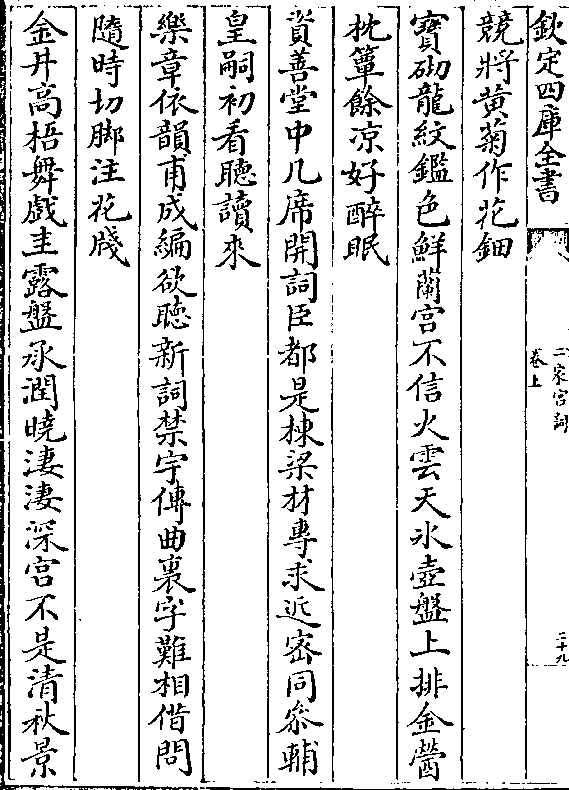 欽定四庫全書
二家宮詞
卷上
二十九
競將黄菊作花鈿
寳砌龍紋鑑色鮮蘭宫不信火雲天氷壺盤上排金罃
枕簟餘凉好醉眠
資善堂中几席開詞臣都是棟梁材専求近宻同叅輔
皇嗣初看聽讀來
樂章依韻甫成編欲聽新詞禁宇傳曲裏字難相借問
隨時切脚注花牋
金井高梧舞戯圭露盤承潤曉淒淒深宫不是清秋景